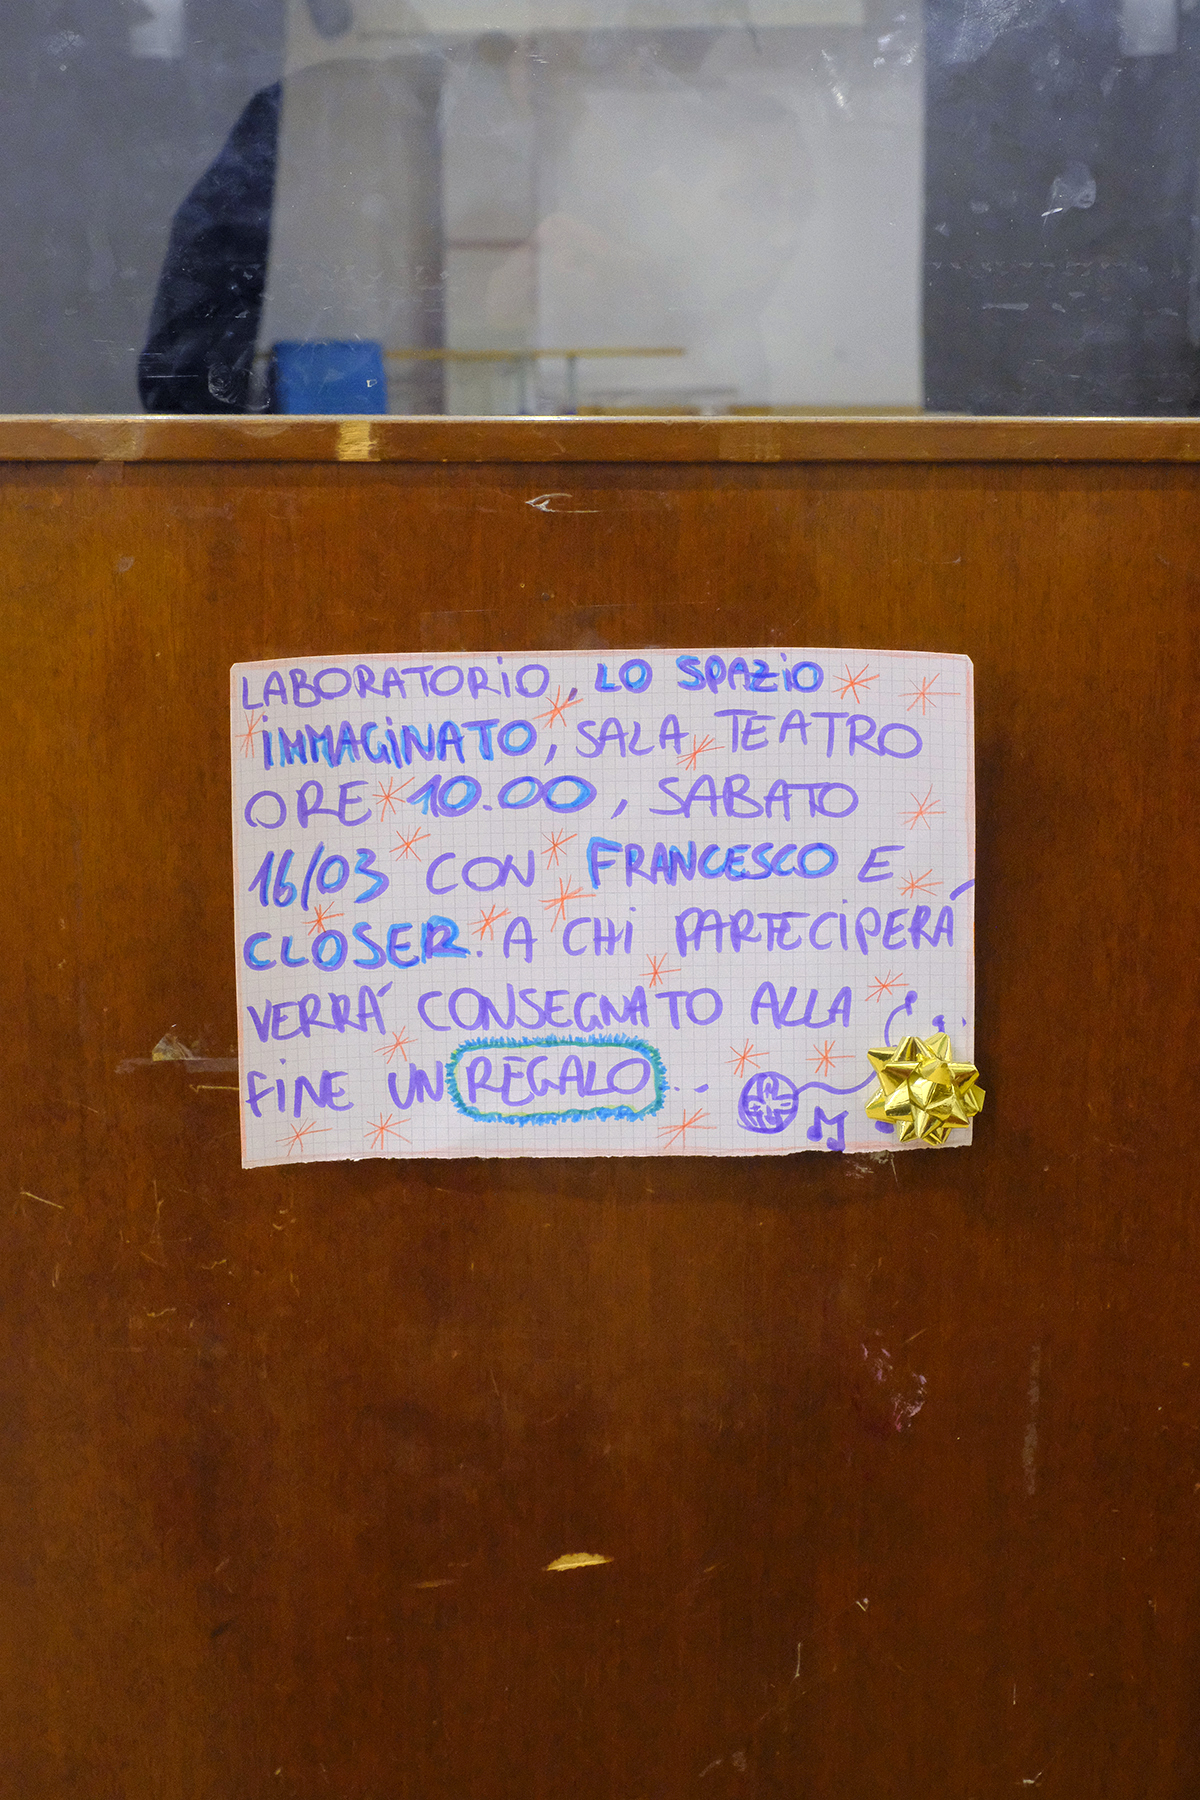 LABORATORIO, LO SPAZIO
IMMAGINATO, SALA TEATRO
ORE 10.00, SABATO
16/03 CON FRANCESCO E
CLOSER. A CHI PARTECIPERÁ
VERRÁ CONSEGNATO ALLA
FINE UN REGALO...